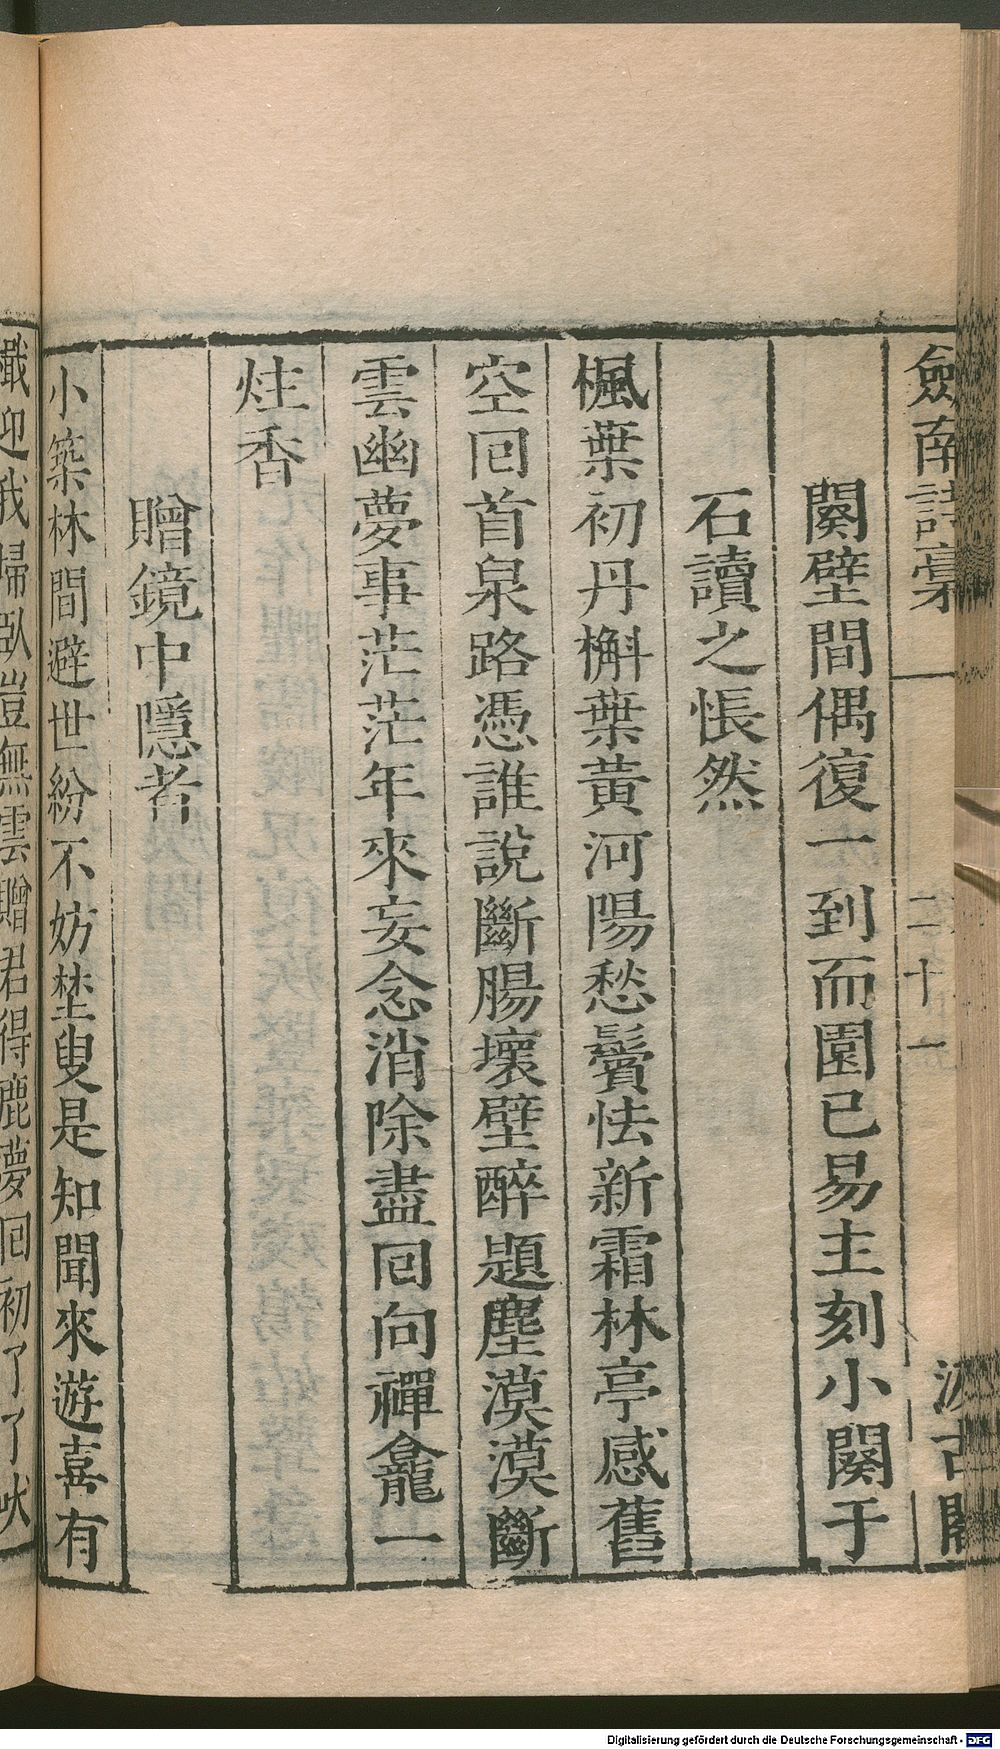 劒南詩稾
二十一
汲古閣
闋壁間偶復一到而園已易主刻小闋于
石讀之悵然
楓葉初丹槲葉黃河陽愁鬢怯新霜林亭感舊
空囘首泉路憑誰說斷腸壞壁醉題塵漠漠斷
雲幽夢事茫茫年來妄念消除盡囘向禪龕一
炷香
贈鏡中隱者
小築林間避世紛不妨埜叟是知聞來遊喜有
檝迎我掃臥豈無雲贈君得鹿夢囘初了了吠
Digitalisierung gefördert durch die Deutsche Forschungsgemeinschaft - DFG